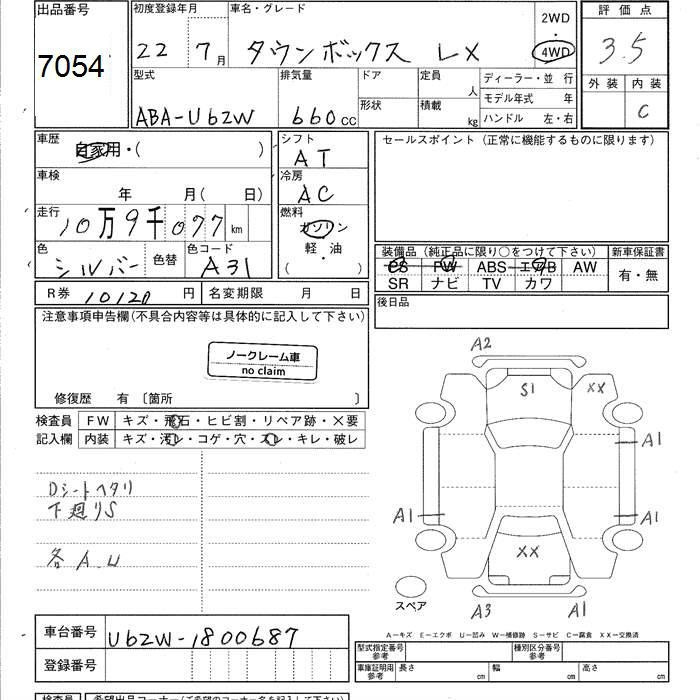 出品番号
7054
初度登録年月
22 7月
車名・グレード
タウンボックス LX
2WD
・
4WD
評価点
3.5
外装 内装
C
型式
ABA-U62W
排気量
660cc
ドア
形状
定員
人
積載
kg
ディーラー・並 行
モデル年式 年
ハンドル 左・右
車歴
自家用・( )
シフト
AT
セールスポイント (正常に機能するものに限ります)
車検
年 月(日)
冷房
AC
走行
10万9千077km
燃料
ガソリン
軽・油
( )
色
シルバー
色替
色コード
A31
装備品 (純正品に限り○をつけて下さい)
新車保証書
PS PW ABS エアB AW
SR ナビ TV カワ
有・無
R券 10120円
名変期限 月 日
後日品
注意事項申告欄(不具合内容等は具体的に記入して下さい)
ノークレーム車
no claim
修復歴 有 〔箇所 〕
検査員
記入欄
FW キズ・飛石・ヒビ割・リペア跡・×要
内装 キズ・汚レ・コゲ・穴・スレ・キレ・破レ
Dシートヘタリ
下廻りS
各A.U
A2
S1
XX
A1
A1
A1
XX
A3
A1
スペア
A―キズ E―エクボ U―凹み W―補修跡 S―サビ C―腐食 XX―交換済
車台番号
U62W-1800687
登録番号
型式指定番号
参考
種別区分番号
参考
車庫証明用
参考
長さ cm
幅 cm
高さ cm
検査員
希望出品コーナー(ご希望のコーナー名を記入下さい)